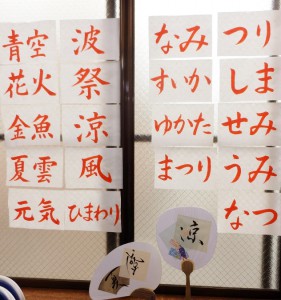 つり
しま
せみ
うみ
なつ
なみ
すいか
ゆかた
まつり
波
祭
涼
風
ひまわり
青空
花火
金魚
夏雲
元気
涼